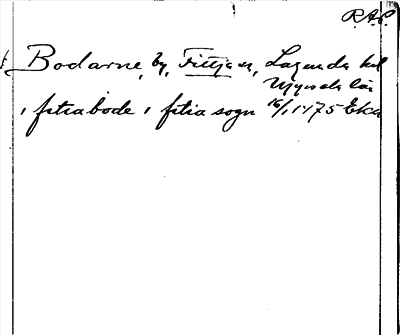 R.A.P.
Bodarne, by, Fittja sn, Lagunda hd
Uppsala län
i fitiabode i fitia sogn 16/1 1475 Eka